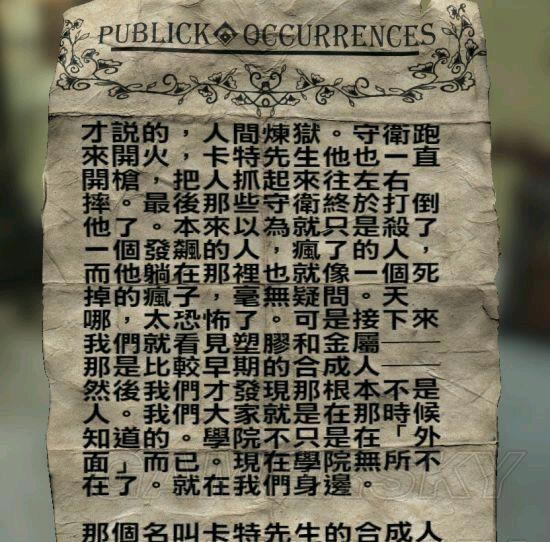 PUBLICK OCCURRENCES
才說的，人間煉獄。守衛跑
來開火，卡特先生他也一直
開槍，把人抓起來往左右
摔。最後那些守衛終於打倒
他了。本來以為就只是殺了
一個發飆的人，瘋了的人，
而他躺在那裡也就像一個死
掉的瘋子，毫無疑問。天
哪，太恐怖了。可是接下來
我們就看見塑膠和金屬——
那是比較早期的合成人——
然後我們才發現那根本不是
人。我們大家就是在那時候
知道的。學院不只是在「外
面」而已。現在學院無所不
在了。就在我們身邊。
那個名叫卡特先生的合成人